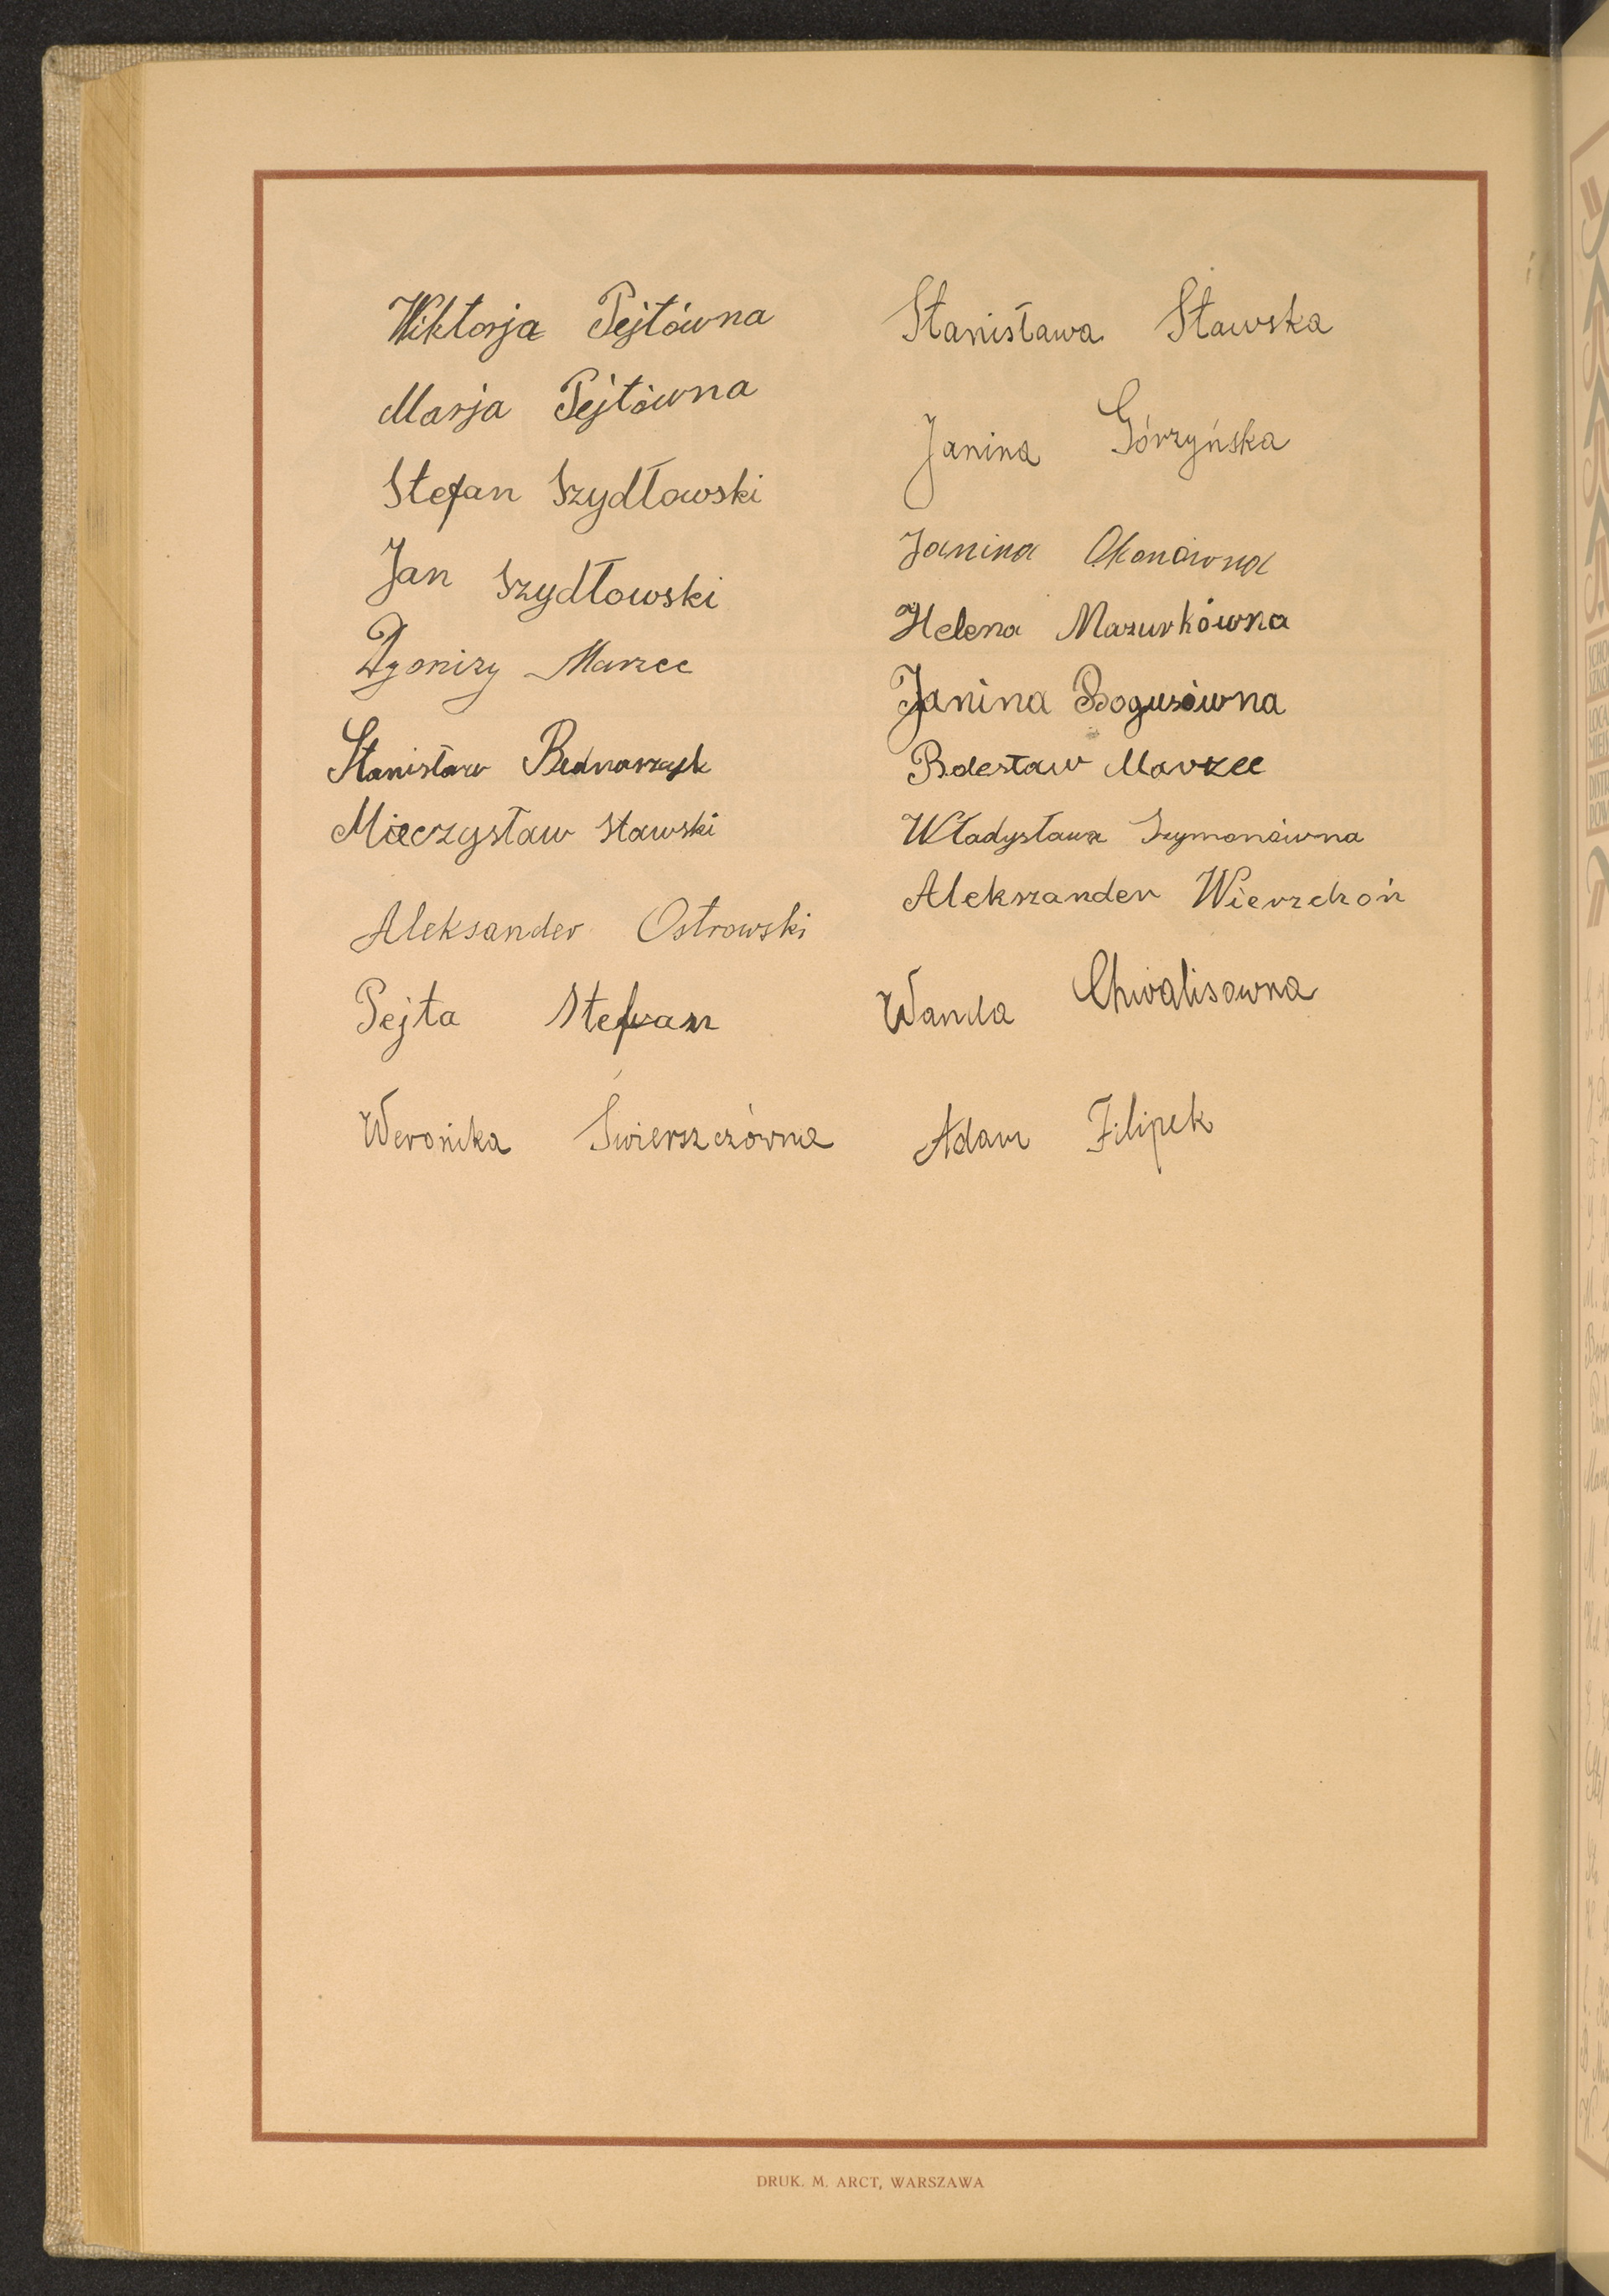 Wiktorja Pejtówna
Marja Pejtówna
Stefan Szydłowski
Jan Szydłowski
Dyonizy Marzec
Stanisław Bednarczyk
Mieczysław Stawski
Aleksander Ostrowski
Pejta Stefan
Weronika Świerszczówna
Stanisława Stawska
Janina Górzyńska
Janina Okonówna
Helena Mazurkówna
Janina Bogusówna
Bolesław Marzec
Władysława Szymonówna
Alekszander Wierzchoń
Wanda Chwalisówna
Adam Filipek
DRUK. M. ARCT, WARSZAWA